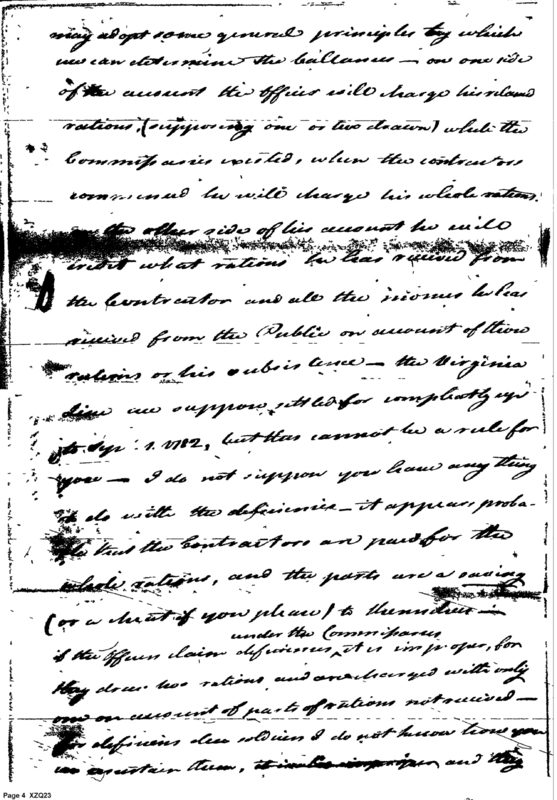 may adopt some general principles by which
we can determine the ballances — on one side
of the account the Officer will charge his retained
rations, (supposing one or two drawn) while the
Commissaries existed, when the contractors
commenced he will charge his whole rations.
on the other side of his account he will
credit what rations he has received from
the Contractor and all the monies he has
received from the Public on account of those
rations or his subsistence — the Virginia
line are suppose settled for compleatly up
to Sepr. 1. 1782, but this cannot be a rule for
you — I do not suppose you have any thing
to do with the deficiencies — it appears proba-
ble that the Contractors are paid for the
whole rations, and the parts are a saving
(or a cheat if you please) to themselves —
under the Commissaries
if the Officers claim deficiencies, it is improper, for
they drew two rations and are charged with only
one on account of parts of rations not received —
for deficiencies due soldiers I do not know how you
can ascertain them, and they
Page 4 XZQ23